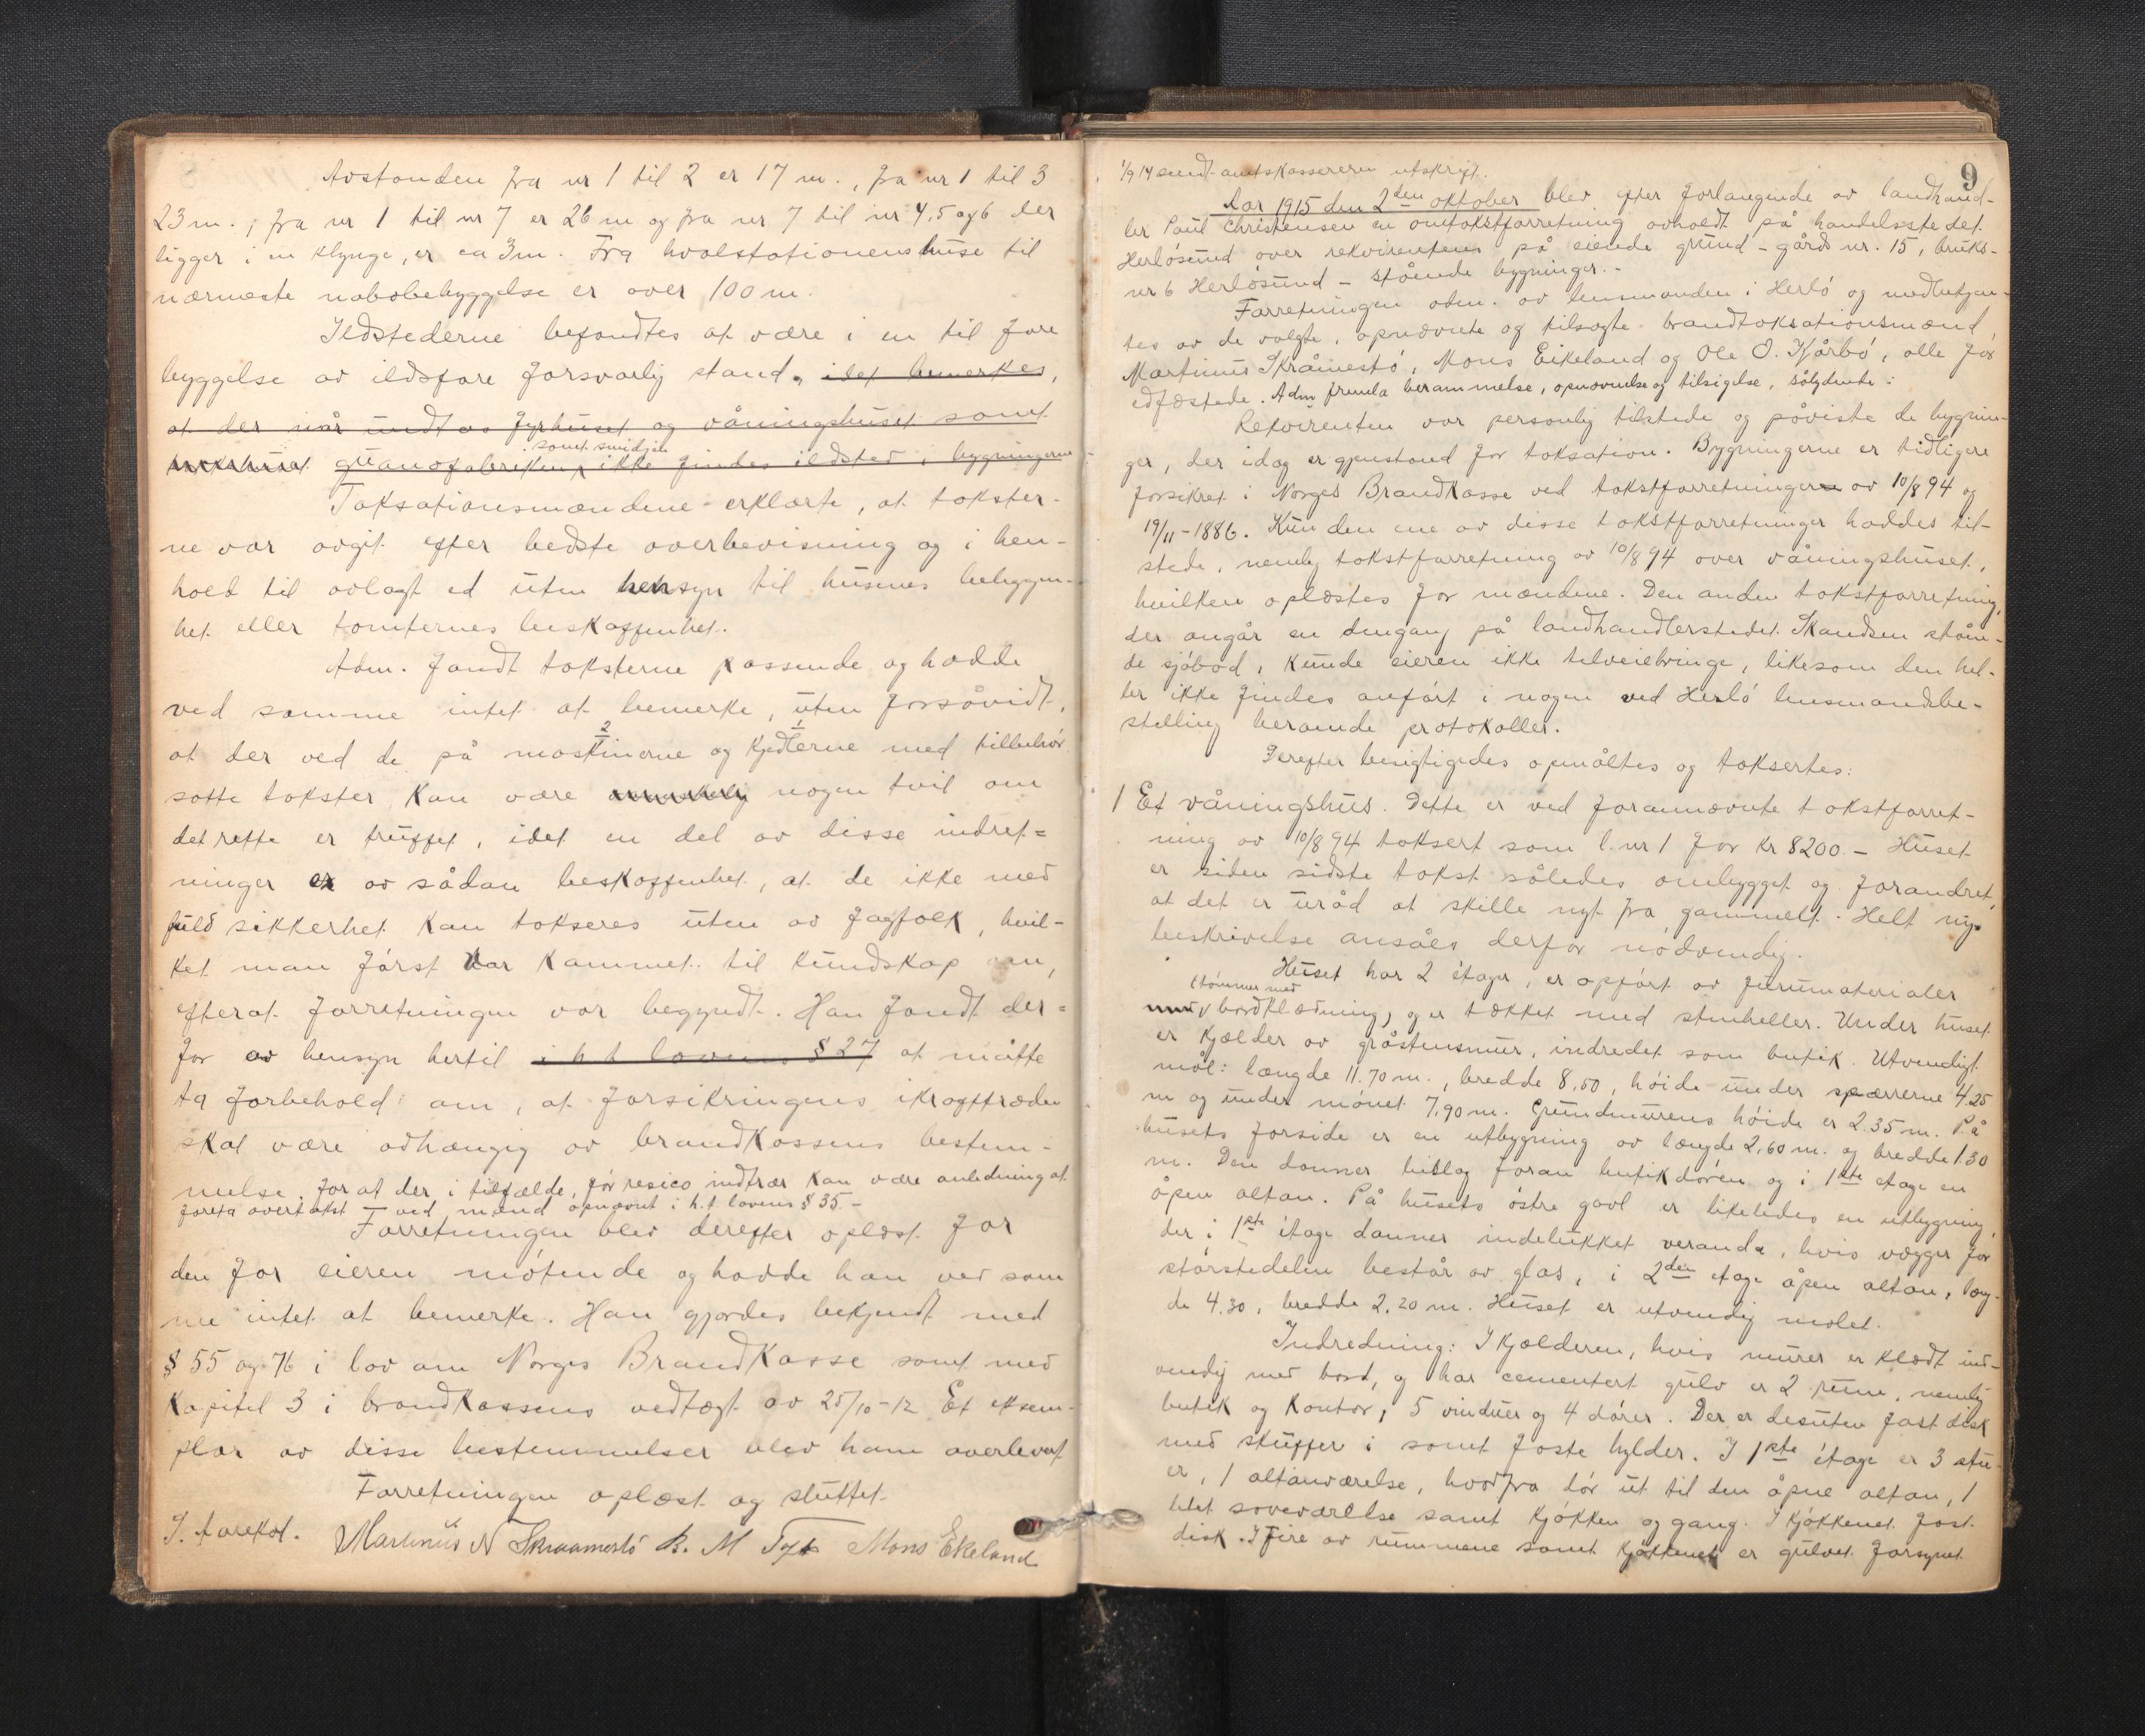 Avstanden fra nr 1 til 2 er 17 m., fra nr 1 til 3
23 m., fra nr 1 til nr 7 er 26 m og fra nr 7 til nr 4, 5 og 6 der
ligger i en klynge, er ca 3 m. Fra hvalstationens huse til
nærmeste nabobebyggelse er over 100 m.
Ildstederne befandtes at være i en til fore
byggelse av ildsfare forsvarlig stand, idet bemerkes,
at der når undt as fyrhuset og våningshuset samt
samt smidjen
guanofabriken, ikke findes ildsted i bygningerne
Taksationsmændene erklærte, at takster-
ne var avgit efter bedste overbevisning og i hen-
hold til avlagt ed uten hensyn til husenes beliggen-
het eller tomternes beskaffenhet.
Adm. fandt taksterne passende og hadde
ved samme intet at bemerke, uten forsåvidt,
at der ved de på maskinerne og kjedlerne med tilbehør
2 1
satte takster kan være nogen tvil om
det rette er truffet, idet en del av disse indret=
ninger er av sådan beskaffenhet, at de ikke med
fuld sikkerhet kan takseres uten av fagfolk, hvil-
ket man først har kommet til kundskap om,
efterat forretningen var begyndt. Han fandt der=
for av hensyn hertil i h t lovens § 27 at måtte
ta forbehold om, at forsikringens ikrafttræden
skal være avhængig av brandkassens bestem-
melse, for at der i tilfælde, før resico indtrær kan være anledning at
foreta overtakst ved mænd opnævnt i h.t lovens § 35.-
Forretningen blev derefter oplæst for
den for eieren møtende og hadde han ved sam
me intet at bemerke. Han gjordes bekjendt med
§ 55 og 76 i lov om Norges Brandkasse samt med
kapitel 3 i brandkassens vedtægt av 25/10-12 Et eksem-
plar av disse bestemmelser blev ham overlevert
Forretningen oplæst og sluttet.
Martinus N Skraamestø B. M Mons Ekeland
9
1/9 14 sendt amtskassereren utskrift.
Aar 1915 den 2den oktober blev efter forlangende av landhand-
ler Paul Christensen en omtakstforretning avholdt på handelsstedet
Herløsund over rekvirentens på eiende grund - gårds nr. 15, bruks-
nr 6 Herløsund - stående bygninger.-
Forretningen adm. av lensmanden i Herlø og medbetjen-
tes av de valgte, opnævnte og tilsagte brandtaksationsmænd
Martinus Skråmestø, Mons Eikeland og Ole O. Kårbø, alle før
edfæstede. Adm fremla berammelse, opnævnelse og tilsigelse, sålydende:
Rekvirenten var personlig tilstede og påviste de bygnin-
ger, der idag er gjenstand for taksation. Bygningerne er tidligere
forsikret i Norges Brandkasse ved takstforretningerne av 10/8 94 og
19/11-1886. Kun den ene av disse takstforretninger haddes til-
stede, nemlig takstforretning av 10/8 94 over våningshuset,
hvilken oplæstes for mændene. Den anden takstforretning,
der angår en dengang på landhandlerstedet Skandsen ståen-
de sjøbod, kunde eieren ikke tilveiebringe, likesom den hel-
ler ikke findes anført i nogen ved Herlø lensmandsbe-
stilling beroende protokoller.
Derefter besigtigedes opmåltes og taksertes:
1 Et våningshus. Dette er ved forannævnte takstforret-
ning av 10/8 94 taksert som l. nr 1 for kr 8200.- Huset
er siden sidste takst således ombygget og forandret,
at det er uråd at skille nyt fra gammelt. Helt ny
beskrivelse ansåes derfor nødvendig.
Huset har 2 étager, er opført av furumaterialer
(tømmer med
bordklædning) og er tækket med stenheller. Under huset
er kjælder av gråstensmur, indredet som butik. Utvendigt
mål: længde 11.70 m., bredde 8,50, høide under sparrerne 4.25
m og under mønet 7,90 m. Grundmurens høide er 2.35 m. På
husets forside er en utbygning av længde 2,60 m. og bredde 1.30
m. Den danner bislag foran butikdøren og i 1ste etage en
åpen altan. På husets østre gavl er likeledes en utbygning,
der i 1ste étage danner indelukket veranda, hvis vægger for
størstedelen består av glas, i 2den etage åpen altan, læng-
de 4.30, bredde 2.20 m. Huset er utvendig malet.
Indredning: I kjælderen, hvis murer er klædt ind-
vendig med bord, og har cementert gulv er 2 rum, nemlig
butik og kontor, 5 vinduer og 4 dører. Der er desuten fast disk
med skuffer i samt faste hylder. I 1ste étage er 3 stu-
er, 1 altanværelse, hvorfra dør ut til den åpne altan, 1
litet soveværelse samt kjøkken og gang. I kjøkkenet fast
disk. I fire av rummene samt kjøkkenet er gulvet forsynet